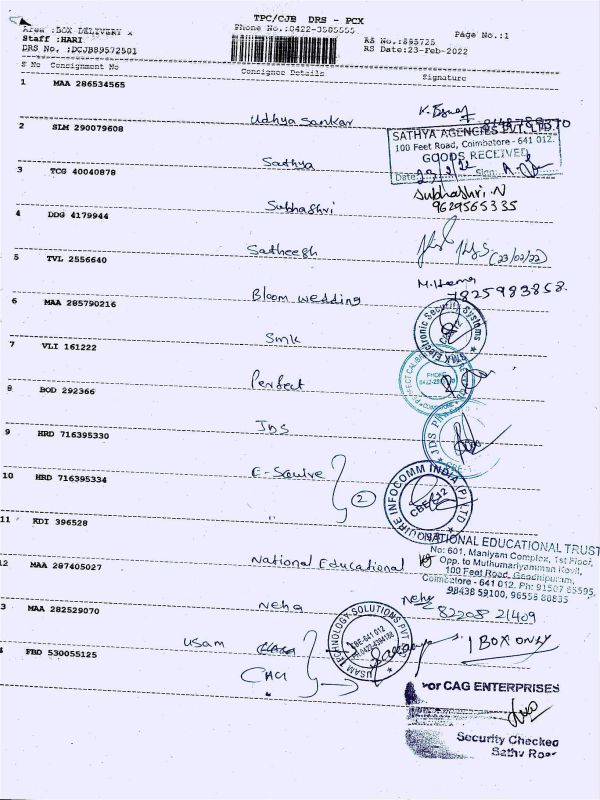 TPC/CJB DRS - PCX
Area :BOX DELIVERY
Phone No.:0422-3585555
Page No.:1
Staff :HARI
RS No.:895725
DRS No. :DCJB89572501
RS Date:23-Feb-2022
S No Consignment No Consignee Details Signature
1 MAA 286534565 Udhya Sankar
2 SLM 290079608 Sathya
SATHYA AGENCIES PVT. LTD.
100 Feet Road, Coimbatore - 641 012.
GOODS RECEIVED
Date: 23/2/22 Sign:
3 TCG 40040878 Subhashri
Subhashri.N
9629565335
4 DDG 4179944 Satheesh
(23/02/22)
5 TVL 2556640 Bloom wedding
M.Hema
7825983858.
6 MAA 285790216 Smk
SMK Electronic Security Systems
7 VLI 161222 Perfect
8 BOD 292366 JDS
9 HRD 716395330 E-Squire
10 HRD 716395334 "
2
INFOCOMM INDIA (P) LTD
11 KDI 396528 National Educational
NATIONAL EDUCATIONAL TRUST
No: 601, Maniyam Complex, 1st Floor,
Opp. to Muthumariyamman Kovil,
100 Feet Road, Gandhipuram,
Coimbatore - 641 012. Ph: 91507 85595,
98438 59100, 96558 88835
12 MAA 287405027 Neha
Neha
82208 21409
3 MAA 282529070 usam
USAM TECHNOLOGY SOLUTIONS PVT
CBE-641 012
1 BOX ONLY
4 FBD 530055125 CAG
For CAG ENTERPRISES
Security Checked